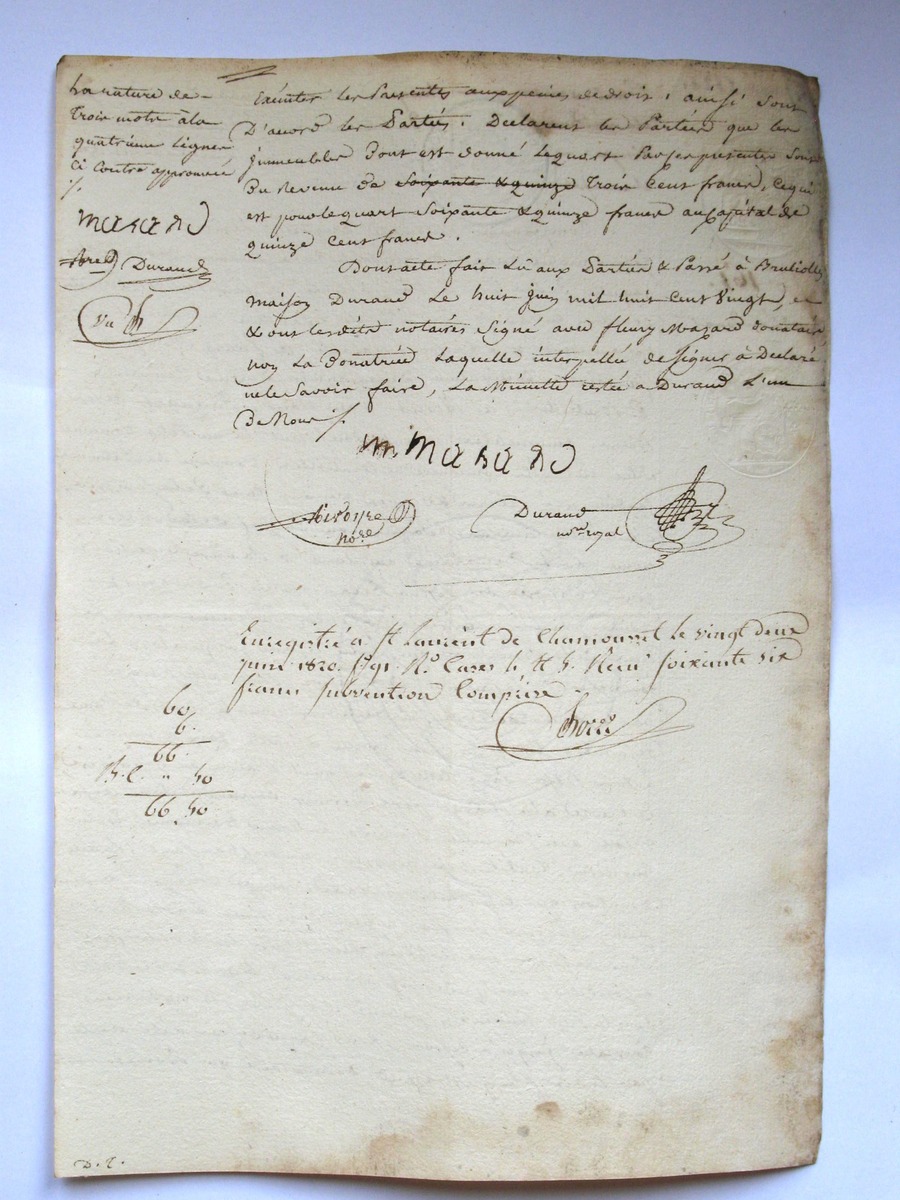 La rature de
Trois mots à la
quatrième Ligne
Ci Contre approuvée
Mazard
Durand
Vu
Exécuter les Presentes aux peines de droit, ainsi sont
D'acord les Parties. Declarent les Parties que les
jmmeubles Dont est donné Lequart Par les presentes Sont
Du Revenu de Soixante & quinze Trois Cent francs, Ce qui
est pour le quart Soixante & quinze francs au Capital de
quinze Cent francs.
Dont acte fait Lû aux Parties & Passé à Brulioles
maison Durand Le huit juin mil huit Cent Vingt, et
& ont lesdits notaires Signé avec fleury Mazard donataire
non La Donatrice Laquelle interpellée de Signer à Declaré
ne le Savoir faire, La Minutte restée a Durand L'un
De Nous
Mazard
nore
Durand
nore royal
Enregistré a St Laurent de Chamousset le vingt deux
juin 1820 fo 91 Ro Cases 4 & 5. Recu soixante six
francs subvention Comprise
60
6.
66.
" 50
66.50
D.T.